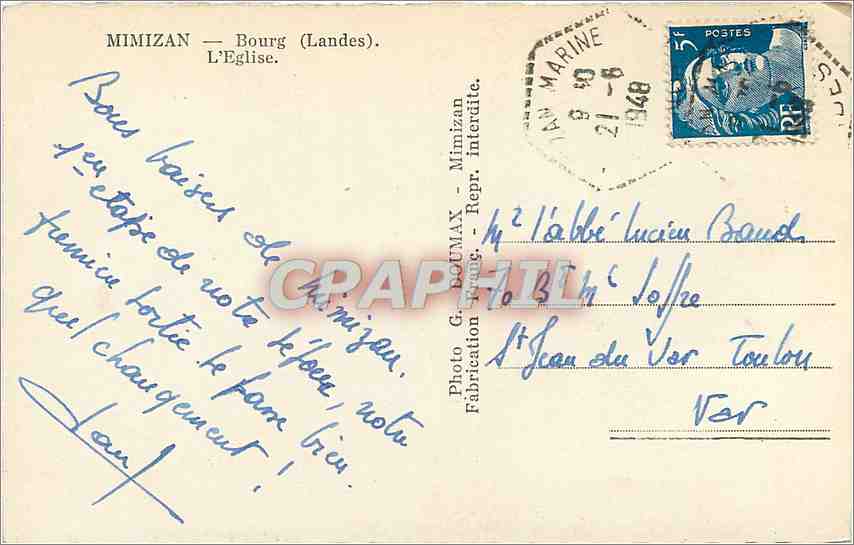 MIMIZAN — Bourg (Landes).
L'Eglise.
Bons baisers de Mimizan.
1en etape de notre séjour, notre
première sortie se passe bien.
quel changement !
Photo G. DOUMAX - Mimizan
Fabrication Franç. - Repr. interdite.
CPARPHIL
MARINE
9 10
21 - 6
1948
5F POSTES
RF
Mr l'abbé Lucien Baud
70 Bd Ml Joffre
St Jean du Var Toulon
Var